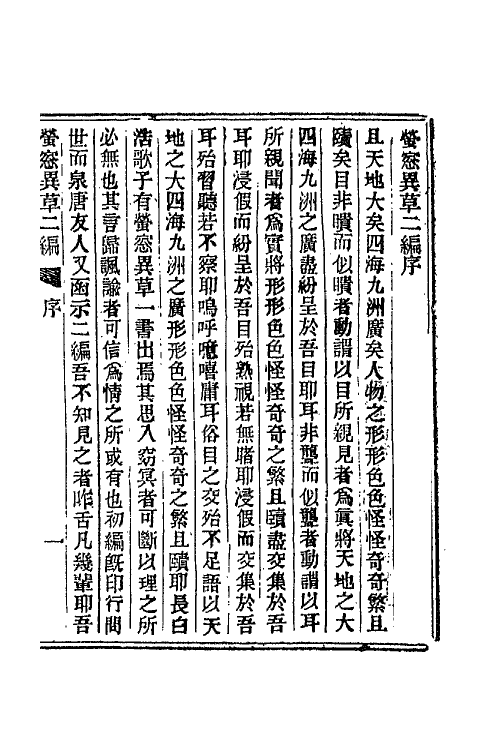 螢窓異草二編序
且天地大矣四海九洲廣矣人物之形形色色怪怪奇奇繁且
賾矣目非瞶而似瞶者動謂以目所親見者爲眞將天地之大
四海九洲之廣盡紛呈於吾目耶耳非聾而似聾者動謂以耳
所親聞者爲實將形形色色怪怪奇奇之繁且賾盡交集於吾
耳耶浸假而紛呈於吾目殆熟視若無睹耶浸假而交集於吾
耳殆習聽若不察耶嗚呼噫嘻庸耳俗目之交殆不足語以天
地之大四海九洲之廣形形色色怪怪奇奇之繁且賾耶長白
浩歌子有螢窓異草一書出焉其思入窈冥者可斷以理之所
必無也其言歸諷諭者可信爲情之所或有也初編既印行問
世而泉唐友人又函示二編吾不知見之者咋舌凡幾輩耶吾
螢窓異草二編 序 一